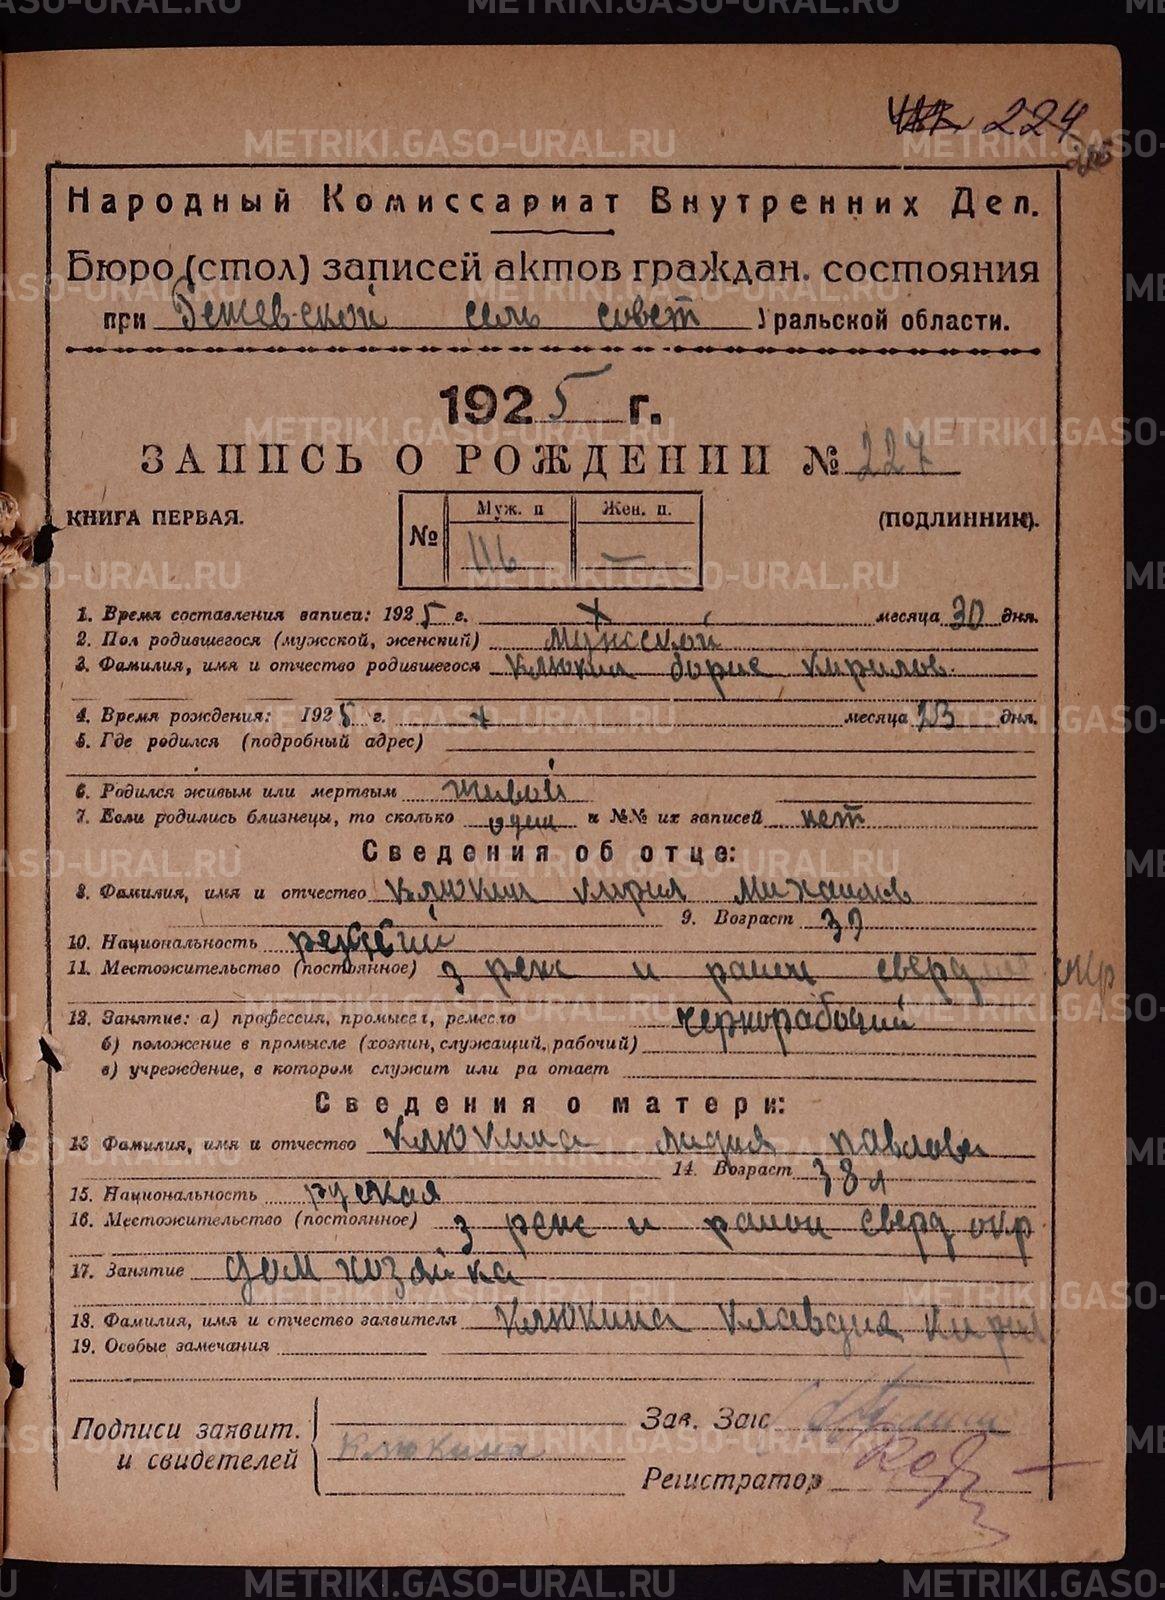 224
Народный Комиссариат Внутренних Дел.
Бюро (стол) записей актов граждан. состояния
при сель совет Уральской области.
1925 г.
ЗАПИСЬ О РОЖДЕНИИ № 227
КНИГА ПЕРВАЯ.
№ Муж. п Жен. п.
116 —
(ПОДЛИННИК).
1. Время составления записи: 1925 г. X месяца 30 дня.
2. Пол родившегося (мужской, женский) мужской
3. Фамилия, имя и отчество родившегося Клюкин Борис Кирилов.
4. Время рождения: 1925 г. X месяца 23 дня.
5. Где родился (подробный адрес)
6. Родился живым или мертвым живой
7. Если родились близнецы, то сколько один и №№ их записей нет
Сведения об отце:
8. Фамилия, имя и отчество Клюкин Кирил Михаилов
9. Возраст 39
10. Национальность
11. Местожительство (постоянное) з реж и район сверд окр
12. Занятие: а) профессия, промысел, ремесло чернорабочий
б) положение в промысле (хозяин, служащий, рабочий)
в) учреждение, в котором служит или ра отает
Сведения о матери:
13 Фамилия, имя и отчество Клюкина Лидия павлова
14. Возраст 38 л
15. Национальность руская
16. Местожительство (постоянное) з реж и район сверд окр
17. Занятие дом хозяйка
18. Фамилия, имя и отчество заявителя Клюкина Клавдия Кирил
19. Особые замечания
Подписи заявит.
и свидетелей
Клюкина
Зав. Загс
Регистратор
METRIKI.GASO-URAL.RU